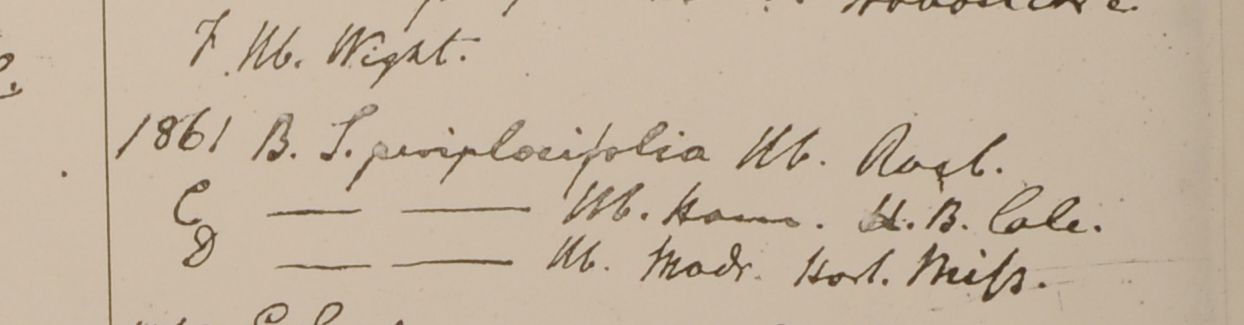 F. Hb. Wight.
1861 B. S. periplocifolia Hb. Roxb.
C — — Hb. Ham. H. B. Calc.
D — — Hb. Madr. Hort. Miſs.